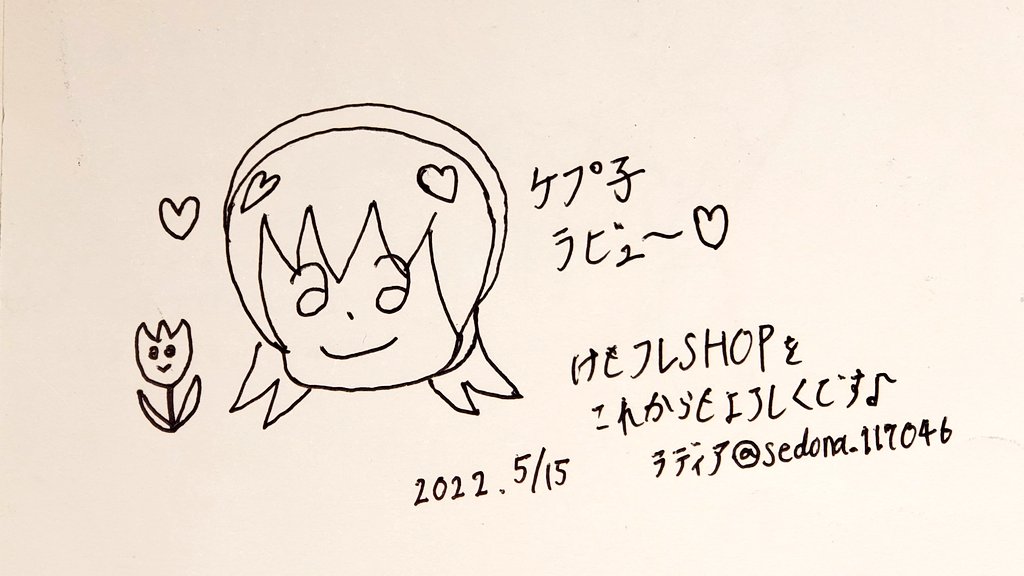 ケプ子
ラビュ〜♡
けもフレSHOPを
これからもよろしくです♪
ラディア@sedona_117046
2022.5/15